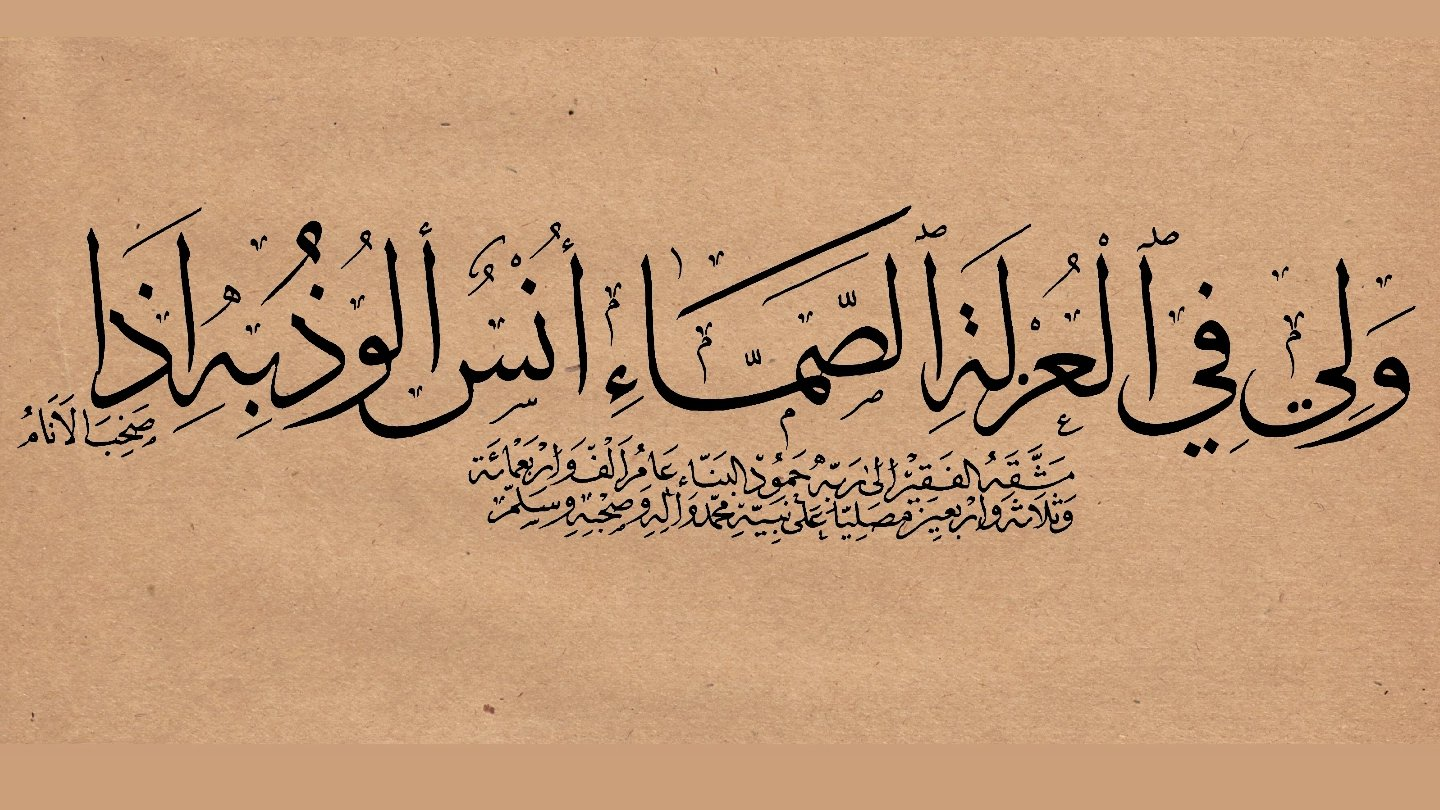 وَلِي فِي ٱلْعُزْلَةِ ٱلصَّمَّاءِ أُنْسٌ أَلُوذُ بِهِ اذَا
صَخِبَ الَانَامُ
مَشَّقَهُ الفَقِيْرُ الى رَبِّهِ حَمُودُ البَنَّاء عَامُ اَلْفٍّ وَارْبَعْمِائَة
وَثَلَاثَه وَارْبَعِينَ مُصَلِيّاً عَلى نَبِيّهِ مُحَمَّد وَآلِهِ وَصَحْبِهِ وَسَلِّمْ